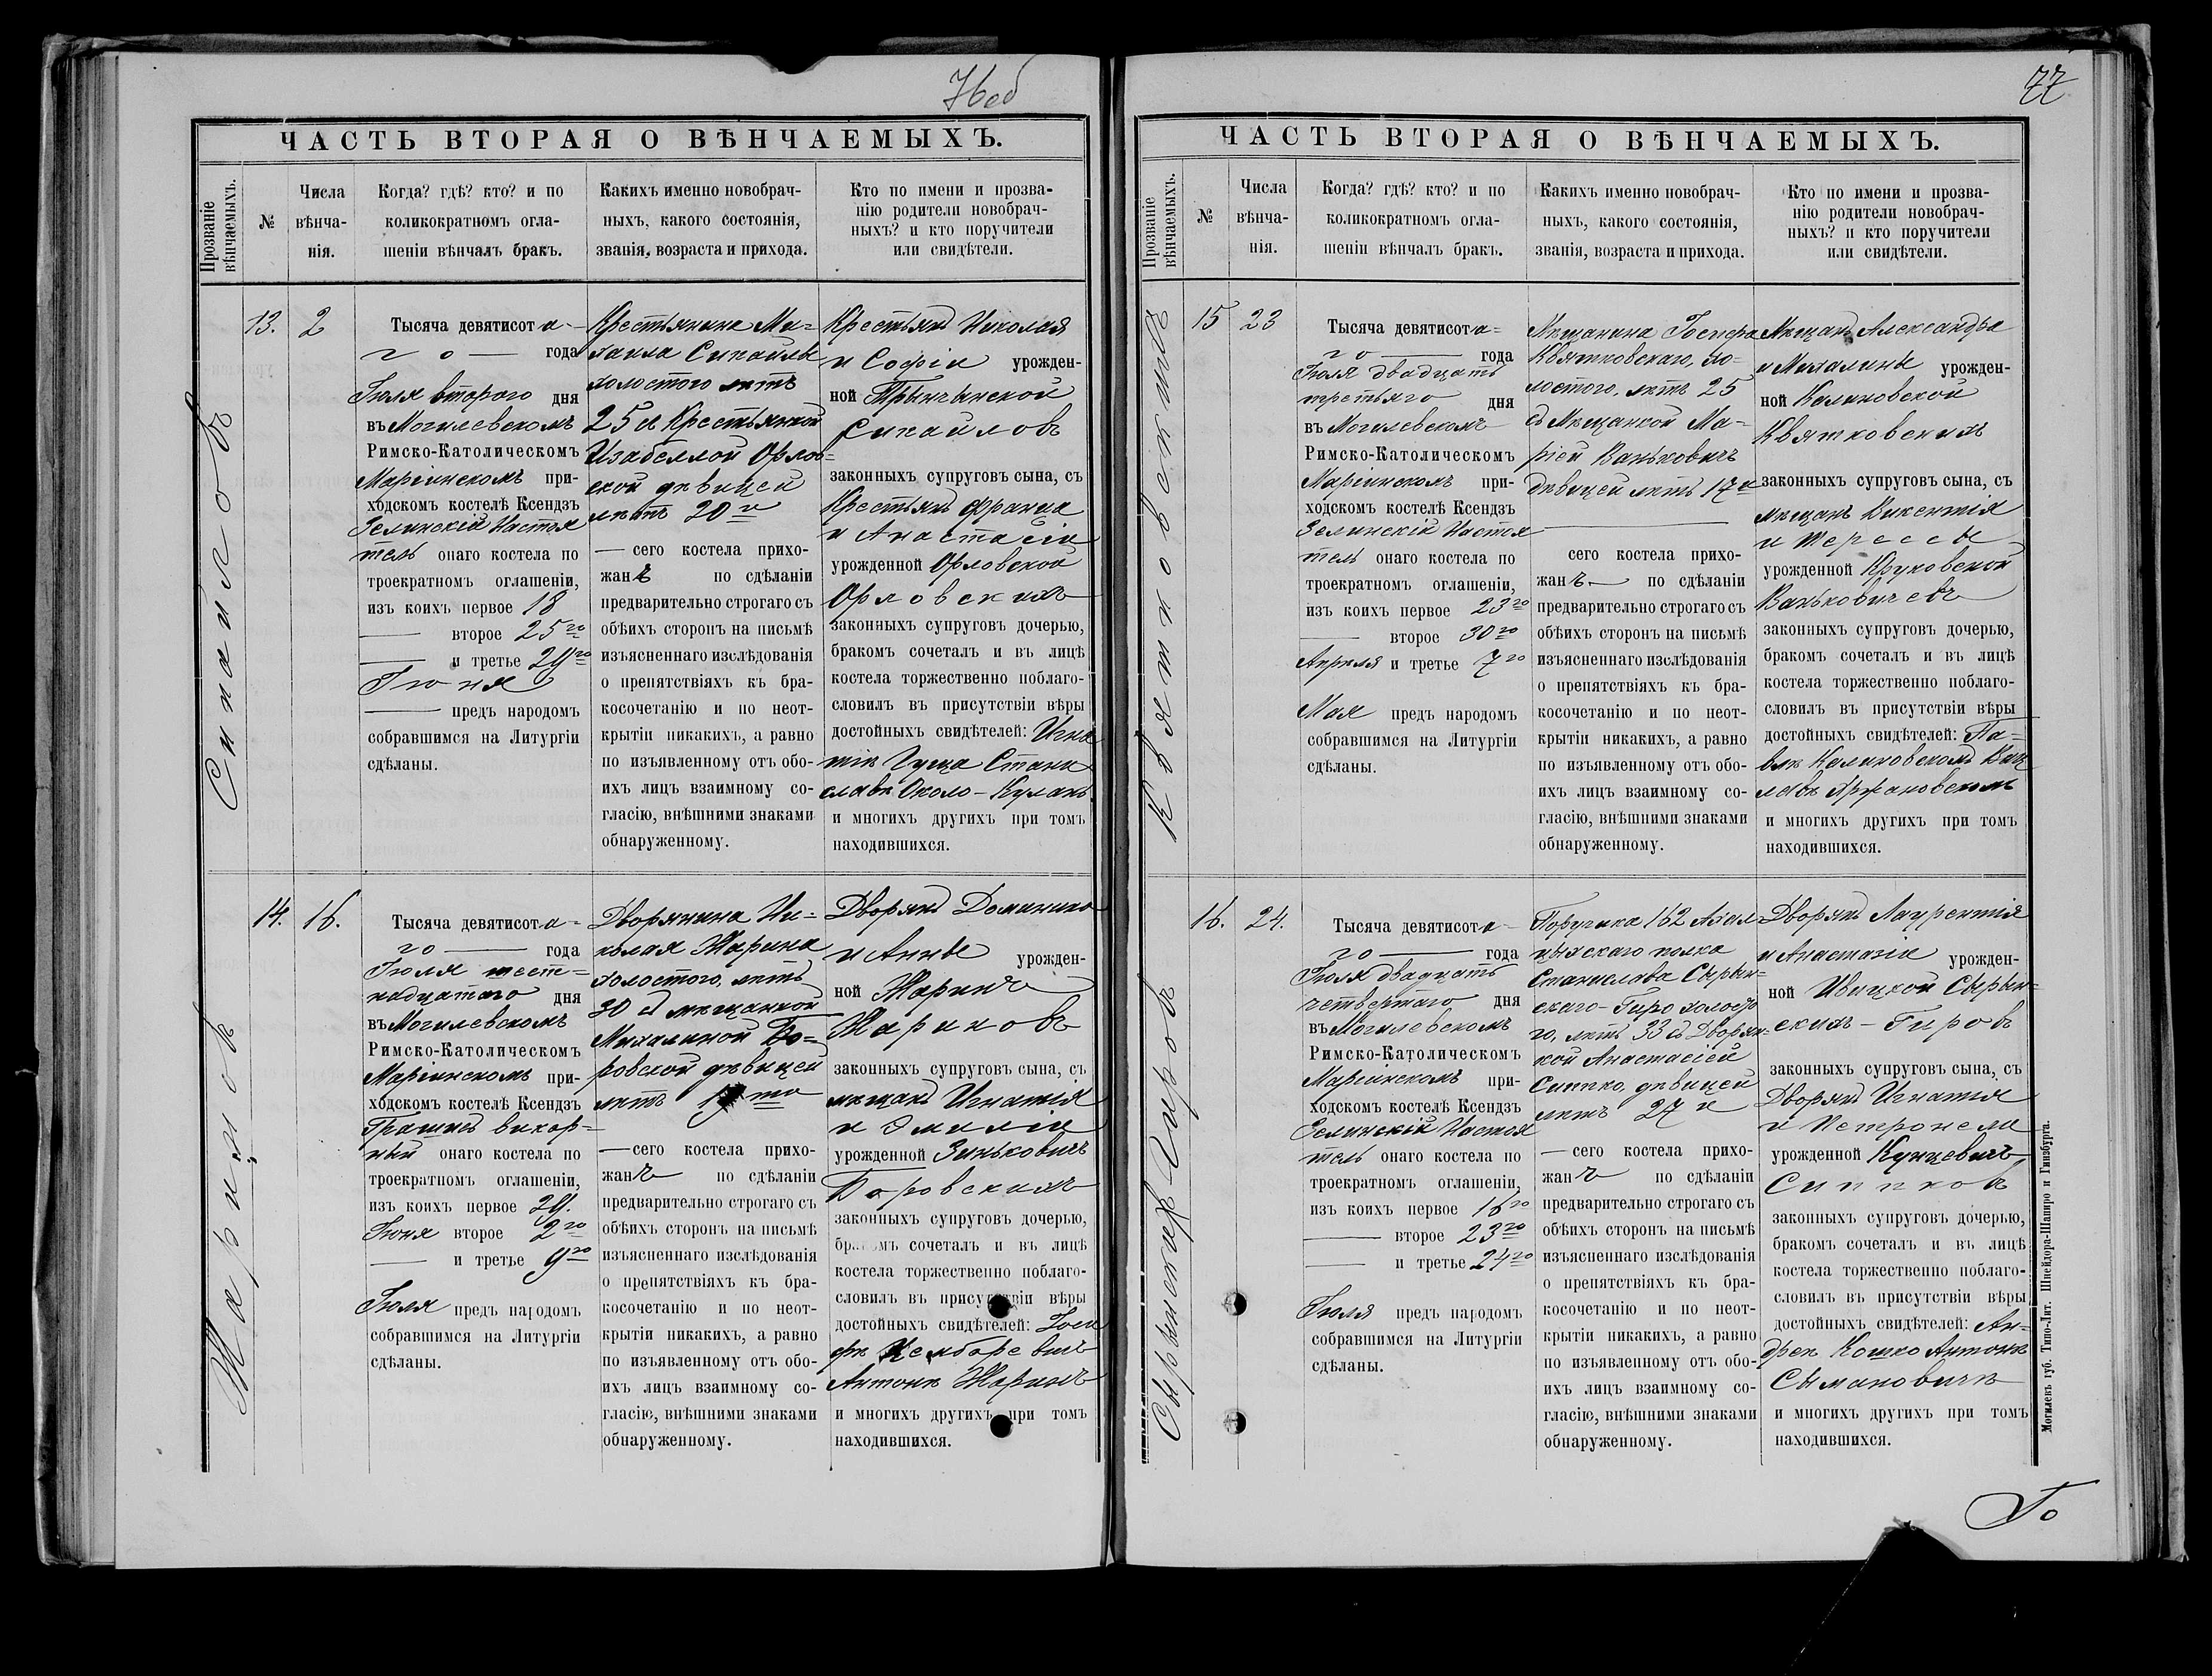 76об
ЧАСТЬ ВТОРАЯ О ВѢНЧАЕМЫХЪ.
Прозваніе вѣнчаемыхъ.
№
Числа
вѣнча-
нія.
Когда? гдѣ? кто? и по
коликократномъ огла-
шеніи вѣнчалъ бракъ.
Какихъ именно новобрач-
ныхъ, какого состоянія,
званія, возраста и прихода.
Кто по имени и прозва-
нію родители новобрач-
ныхъ? и кто поручители
или свидѣтели.
Сипайловъ
13.
2
Тысяча девятисот а-
го — года
Іюля второго дня
въ Могилевскомъ
Римско-Католическомъ
Маріинскомъ при-
ходскомъ костелѣ Ксендзъ
Зелинскій Настоя
тель онаго костела по
троекратномъ оглашеніи,
изъ коихъ первое 18
— второе 25го
— и третье 29го
Іюня
— предъ народомъ
собравшимся на Литургіи
сдѣланы.
Крестьянина Ми-
хаила Сипайлы
холостого лѣтъ
25 съ Крестьянкой
Изабеллой Орлов-
ской дѣвицей
лѣтъ 20и
— сего костела прихо-
жанъ по сдѣланіи
предварительно строгаго съ
обѣихъ сторонъ на письмѣ
изъясненнаго изслѣдованія
о препятствіяхъ къ бра-
косочетанію и по неот-
крытіи никакихъ, а равно
по изъявленному отъ обо-
ихъ лицъ взаимному со-
гласію, внѣшними знаками
обнаруженному.
Крестьянъ Николая
и Софіи урожден-
ной Трынчинской
Сипайловъ
законныхъ супруговъ сына, съ
Крестьянъ Франца
и Анастасіи
урожденной Орловской
Орловскихъ
законныхъ супруговъ дочерью,
бракомъ сочеталъ и въ лицѣ
костела торжественно поблаго-
словилъ въ присутствіи вѣры
достойныхъ свидѣтелей: Игна
тія Гуща Стани
славѣ Около-Кулакъ
и многихъ другихъ при томъ
находившихся.
Жариновъ
14.
16.
Тысяча девятисот а-
го — года
Іюля шест-
надцатаго дня
въ Могилевскомъ
Римско-Католическомъ
Маріинскомъ при-
ходскомъ костелѣ Ксендзъ
Грашисъ викар-
ный онаго костела по
троекратномъ оглашеніи,
изъ коихъ первое 29.
Іюня второе 2го
— и третье 9го
Іюля предъ народомъ
собравшимся на Литургіи
сдѣланы.
Дворянина Ни-
колая Жарина
холостого, лѣтъ
30 съ мѣщанкой
Михалиной Бо-
ровской дѣвицей
лѣтъ
— сего костела прихо-
жанъ по сдѣланіи
предварительно строгаго съ
обѣихъ сторонъ на письмѣ
изъясненнаго изслѣдованія
о препятствіяхъ къ бра-
косочетанію и по неот-
крытіи никакихъ, а равно
по изъявленному отъ обо-
ихъ лицъ взаимному со-
гласію, внѣшними знаками
обнаруженному.
Дворянъ Доминика
и Анны урожден-
ной Жаринъ
Жариновъ
законныхъ супруговъ сына, съ
мѣщанъ Игнатія
и Эмиліи
урожденной Зиньковичъ
Боровскихъ
законныхъ супруговъ дочерью,
бракомъ сочеталъ и въ лицѣ
костела торжественно поблаго-
словилъ въ присутствіи вѣры
достойныхъ свидѣтелей: Іоси
фѣ Цемборевичъ
Антонѣ Жаринъ
и многихъ другихъ при томъ
находившихся.
77
ЧАСТЬ ВТОРАЯ О ВѢНЧАЕМЫХЪ.
Прозваніе вѣнчаемыхъ.
№
Числа
вѣнча-
нія.
Когда? гдѣ? кто? и по
коликократномъ огла-
шеніи вѣнчалъ бракъ.
Какихъ именно новобрач-
ныхъ, какого состоянія,
званія, возраста и прихода.
Кто по имени и прозва-
нію родители новобрач-
ныхъ? и кто поручители
или свидѣтели.
Квятковскихъ
15
23
Тысяча девятисот а-
го — года
Іюля двадцать
третьяго дня
въ Могилевскомъ
Римско-Католическомъ
Маріинскомъ при-
ходскомъ костелѣ Ксендзъ
Зелинскій Настоя
тель онаго костела по
троекратномъ оглашеніи,
изъ коихъ первое 23го
— второе 30го
Апрѣля и третье 7го
Мая предъ народомъ
собравшимся на Литургіи
сдѣланы.
Мѣщанина Іосифа
Квятковскаго, хо-
лостого, лѣтъ 25
съ Мѣщанкой Ма-
ріей Ваньковичъ
дѣвицей лѣтъ 17и
сего костела прихо-
жанъ — по сдѣланіи
предварительно строгаго съ
обѣихъ сторонъ на письмѣ
изъясненнаго изслѣдованія
о препятствіяхъ къ бра-
косочетанію и по неот-
крытіи никакихъ, а равно
по изъявленному отъ обо-
ихъ лицъ взаимному со-
гласію, внѣшними знаками
обнаруженному.
Мѣщанъ Александра
и Михалины урожден-
ной Калиновской
Квятковскихъ
законныхъ супруговъ сына, съ
мѣщанъ Викентія
и Терессы
урожденной Круковской
Ваньковичевъ
законныхъ супруговъ дочерью,
бракомъ сочеталъ и въ лицѣ
костела торжественно поблаго-
словилъ въ присутствіи вѣры
достойныхъ свидѣтелей: Па-
влѣ Калиновскомъ Вац
лавѣ Аржановскомъ
и многихъ другихъ при томъ
находившихся.
Сырынскихъ-Гировъ
16.
24.
Тысяча девятисот а-
го — года
Іюля двадцать
четвертаго дня
въ Могилевскомъ
Римско-Католическомъ
Маріинскомъ при-
ходскомъ костелѣ Ксендзъ
Зелинскій Настоя
тель онаго костела по
троекратномъ оглашеніи,
изъ коихъ первое 16го
— второе 23го
— и третье 24го
Іюля предъ народомъ
собравшимся на Литургіи
сдѣланы.
Поручика 162 Ахал
цыхскаго полка
Станислава Сырын-
скаго-Гиро холосто
го, лѣтъ 33 съ Дворян-
кой Анастасіей
Сиппко, дѣвицей
лѣтъ 27 и
— сего костела прихо-
жанъ по сдѣланіи
предварительно строгаго съ
обѣихъ сторонъ на письмѣ
изъясненнаго изслѣдованія
о препятствіяхъ къ бра-
косочетанію и по неот-
крытіи никакихъ, а равно
по изъявленному отъ обо-
ихъ лицъ взаимному со-
гласію, внѣшними знаками
обнаруженному.
Дворянъ Лаурентія
и Анастазіи урожден-
ной Ивицкой Сырын-
скихъ-Гировъ
законныхъ супруговъ сына, съ
Дворянъ Игнатія
и Петронели
урожденной Кунцевичъ
Сиппковъ
законныхъ супруговъ дочерью,
бракомъ сочеталъ и въ лицѣ
костела торжественно поблаго-
словилъ въ присутствіи вѣры
достойныхъ свидѣтелей: Ан-
дреѣ Кошко Антонѣ
Сымановичѣ
и многихъ другихъ при томъ
находившихся.
Могилевъ губ. Типо-Лит. Шнейдора-Шапиро и Гинзбурга.